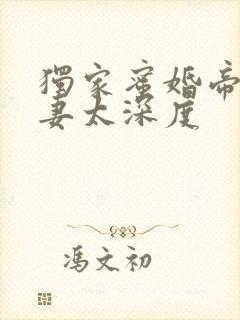 獨家蜜婚帝
妻太深度
馮文初